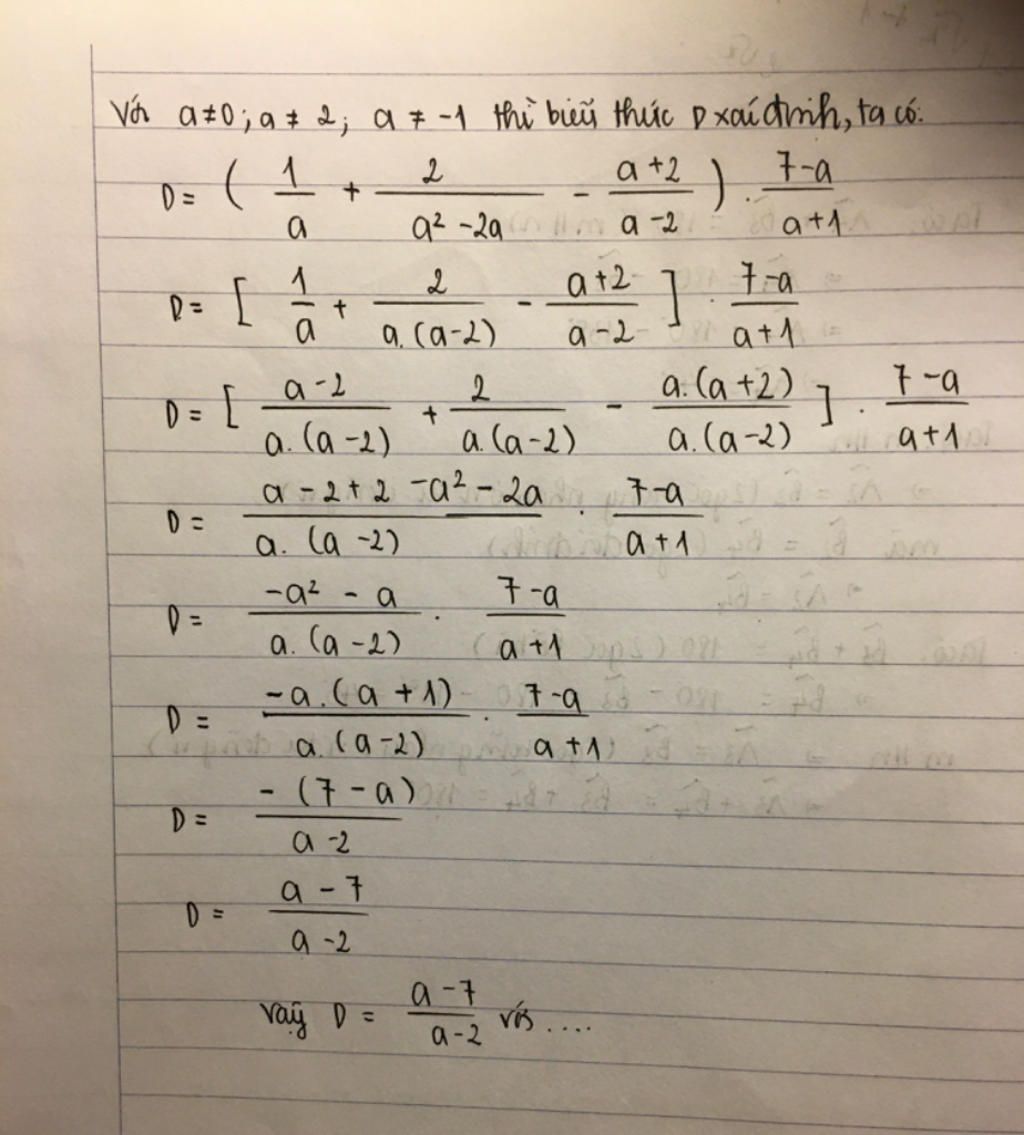 Với a≠0; a ≠ 2; a ≠ -1 thì biểu thức D xác định, ta có:
D = ( 1/a + 2/(a² - 2a) - (a+2)/(a-2) ) . (7-a)/(a+1)
D = [ 1/a + 2/(a.(a-2)) - (a+2)/(a-2) ] . (7-a)/(a+1)
D = [ (a-2)/(a.(a-2)) + 2/(a.(a-2)) - (a.(a+2))/(a.(a-2)) ] . (7-a)/(a+1)
D = (a - 2 + 2 - a² - 2a)/(a.(a-2)) . (7-a)/(a+1)
D = (-a² - a)/(a.(a-2)) . (7-a)/(a+1)
D = (-a.(a+1))/(a.(a-2)) . (7-a)/(a+1)
D = (-(7-a))/(a-2)
D = (a-7)/(a-2)
Vậy D = (a-7)/(a-2) với ....